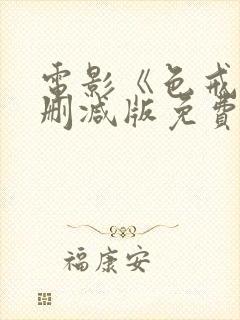 電影《色戒
刪減版免費
福康安